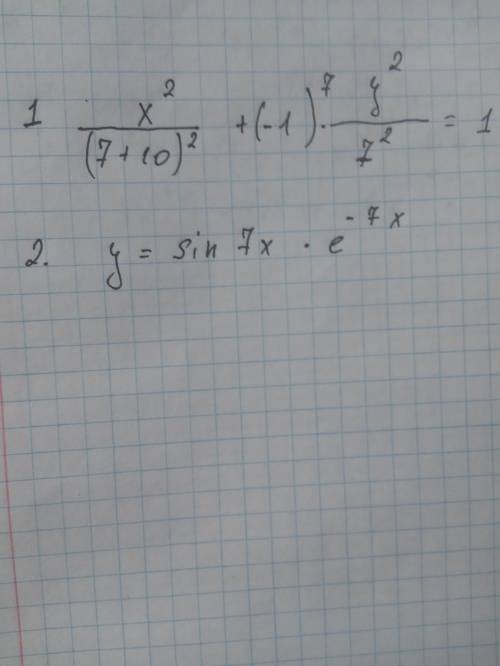 1 x²/(7+10)² + (-1)⁷ · y²/7² = 1
2. y = sin 7x · e⁻⁷ˣ